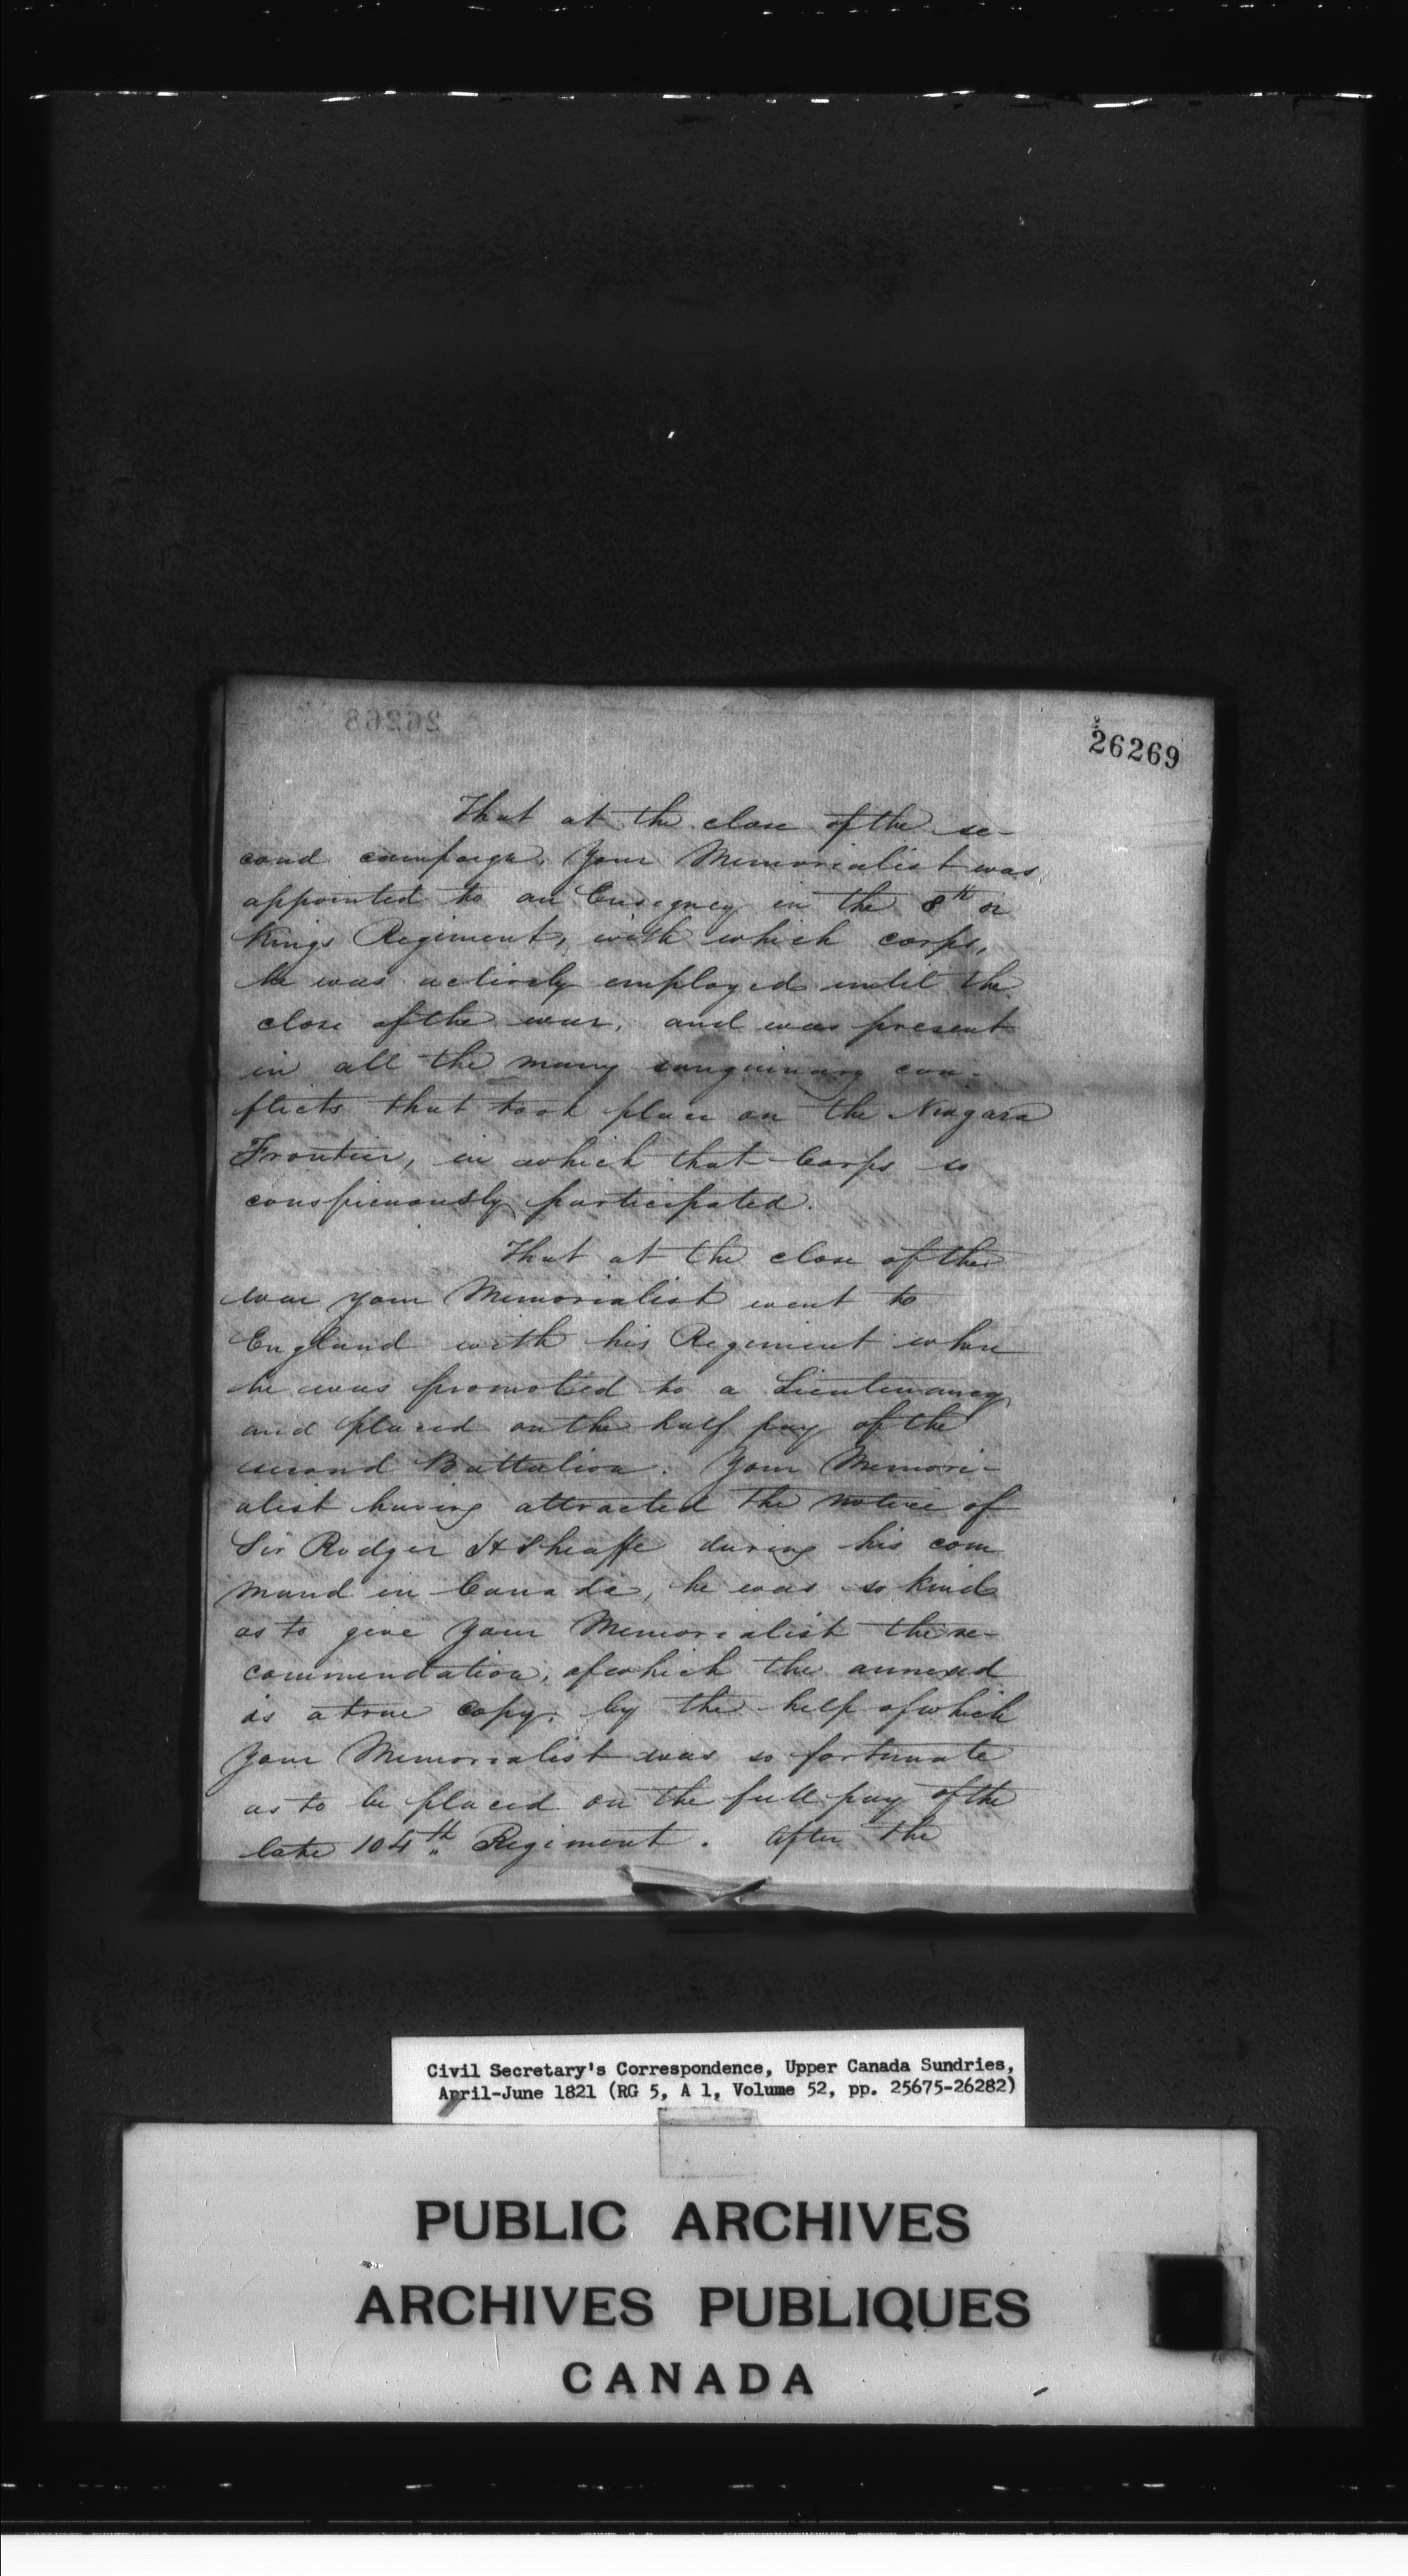 26268
26269
That at the close of the se-
cond campaign, Your Memorialist was
appointed to an Ensigncy in the 8th or
Kings Regiment, with which corps,
he was actively employed until the
close of the war, and was present
in all the many sanguinary con-
flicts that took place on the Niagara
Frontier, in which that Corps so
conspicuously participated.
That at the close of the
war your Memorialist went to
England with his Regiment where
he was promoted to a Lieutenancy
and placed on the half pay of the
second Battalion. Your Memori-
alist having attracted the notice of
Sir Rodger H Sheaffe during his com
mand in Canada, he was so kind
as to give Your Memorialist the re-
commendation, of which the annexed
is a true copy, by the help of which
Your Memorialist was so fortunate
as to be placed on the full pay of the
late 104th Regiment. After the
Civil Secretary's Correspondence, Upper Canada Sundries,
April-June 1821 (RG 5, A 1, Volume 52, pp. 25675-26282)
PUBLIC ARCHIVES
ARCHIVES PUBLIQUES
CANADA